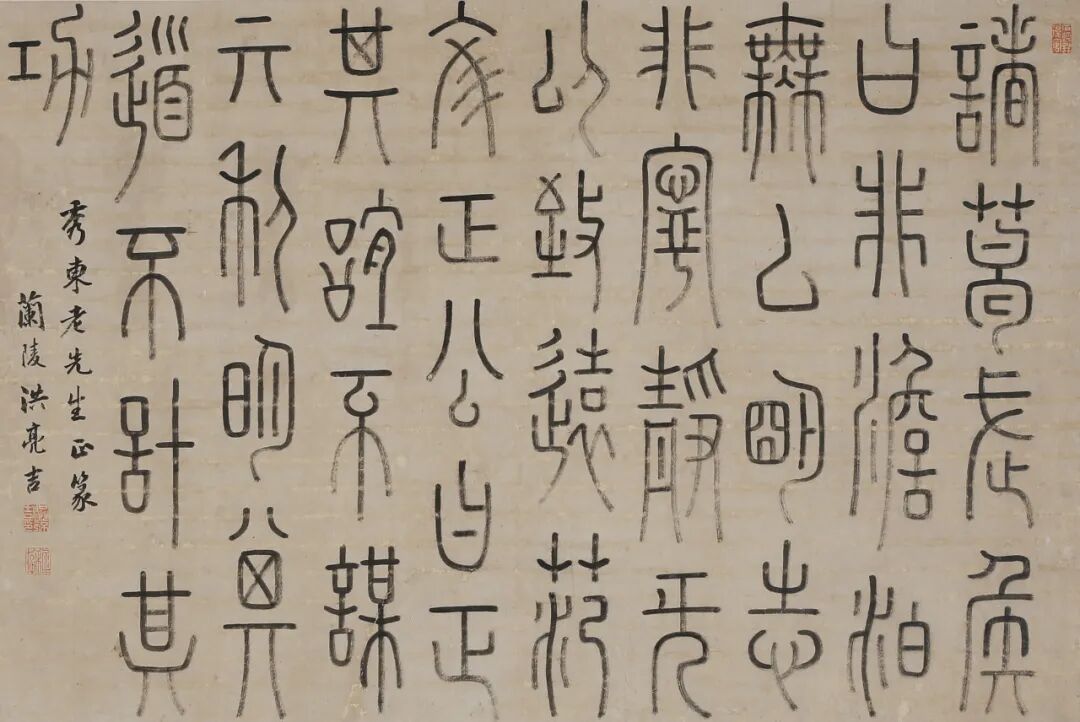 諸葛武侯
曰非澹泊
無以朙志
非寧靜无
以致遠范
彣正公曰正
其誼不謀
亓利明其
道不計其
功
秀東老先生正篆
蘭陵洪亮吉